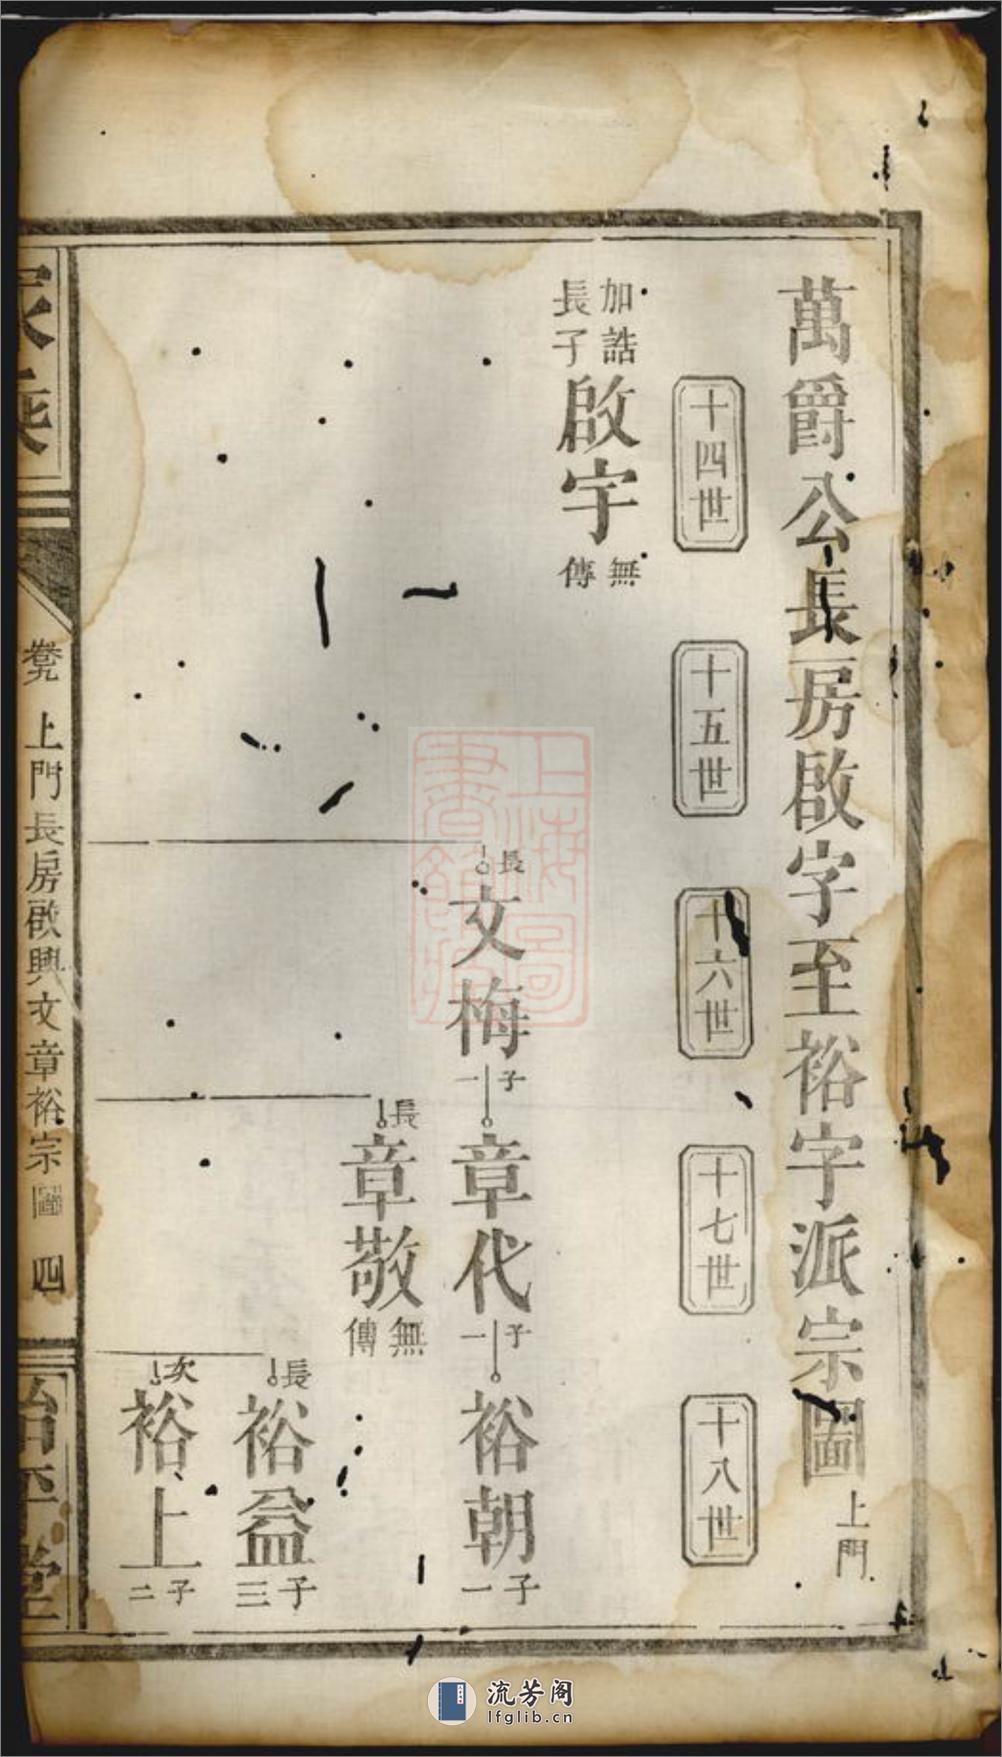 萬爵公長房啟字至裕字派宗圖上門
十四世
十五世
十六世
十七世
十八世
加誥長子啟宇無傳
長文梅子一
章代子一
裕朝子一
長章敬無傳
長裕益子三
次裕上子二
家乘
上門長房啟興文章裕宗圖 四
上海圖書館藏
流芳阁
lfglib.cn